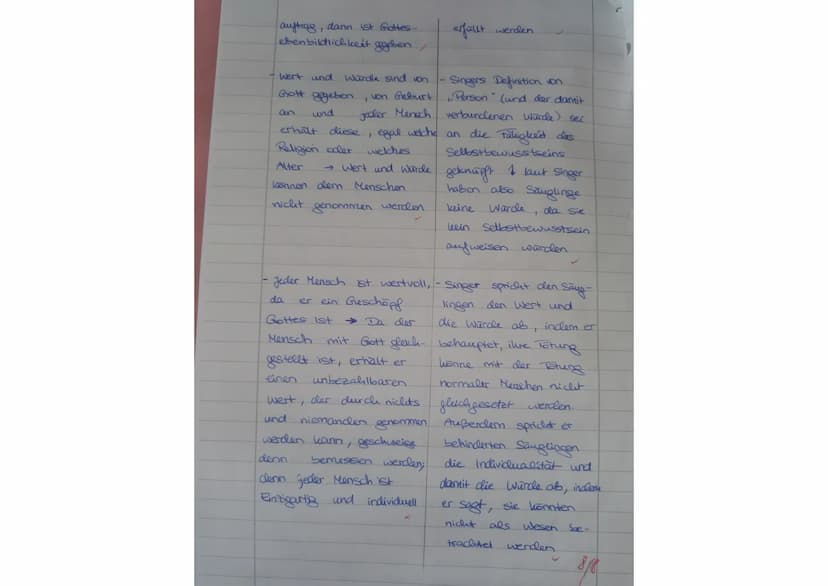 auftrag, dann ist Gottes-
ebenbildlichkeit gegeben.
- Wert und Würde sind von
Gott gegeben, von Geburt
an und jeder Mensch
erhält diese, egal welche
Religion oder welches
Alter → Wert und Würde
können dem Menschen
nicht genommen werden
- Jeder Mensch ist wertvoll,
da er ein Geschöpf
Gottes ist → Da der
Mensch mit Gott gleich-
gestellt ist, erhält er
einen unbezahlbaren
Wert, der durch nichts
und niemanden genommen
werden kann, geschweige
denn bemessen werden;
denn jeder Mensch ist
Einzigartig und individuell
erfüllt werden
- Singers Definition von
„Person" (und der damit
verbundenen Würde) sei
an die Fähigkeit des
Selbstbewusstseins
geknüpft laut Singer
haben also Säuglinge
keine Würde, da sie
kein Selbstbewusstsein
aufweisen würden
- Singer spricht den Säug-
lingen den Wert und
die Würde ab, indem er
behauptet, ihre Tötung
könne mit der Tötung
normaler Menschen nicht
gleichgesetzt werden.
Außerdem spricht er
behinderten Säuglingen
die Individualität und
damit die Würde ab, indem
er sagt, sie könnten
nicht als Wesen be-
trachtet werden
8/8